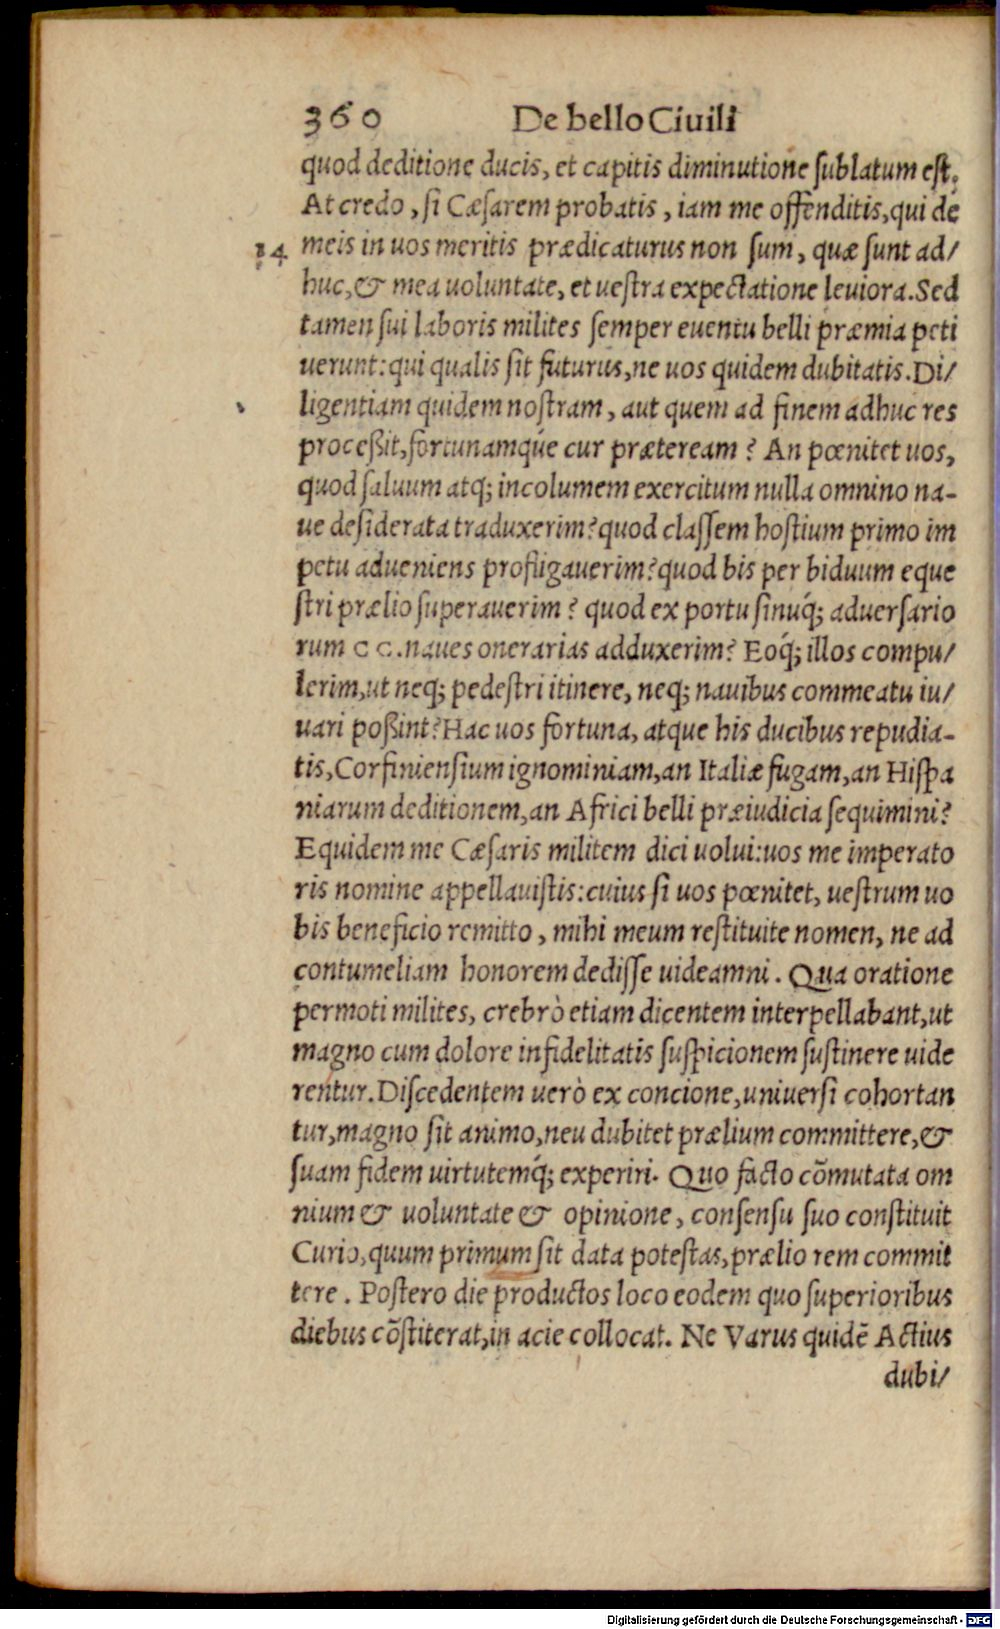 360 De bello Ciuili
quod deditione ducis, et capitis diminutione ſublatum eſt.
At credo, ſi Cæſarem probatis, iam me offenditis, qui de
14 meis in uos meritis prædicaturus non ſum, quæ ſunt ad/
huc, & mea uoluntate, et ueſtra expectatione leuiora. Sed
tamen ſui laboris milites ſemper euentu belli præmia peti
uerunt: qui qualis ſit futurus, ne uos quidem dubitatis. Di/
ligentiam quidem noſtram, aut quem ad finem adhuc res
proceßit, fortunamqúe cur præteream? An pœnitet uos,
quod ſaluum atq; incolumem exercitum nulla omnino na-
ue deſiderata traduxerim? quod claſſem hoſtium primo im
petu adueniens profligauerim? quod bis per biduum eque
ſtri prælio ſuperauerim? quod ex portu ſinuq́; aduerſario
rum CC. naues onerarias adduxerim? Eoq́; illos compu/
lerim, ut neq; pedeſtri itinere, neq; nauibus commeatu iu/
uari poßint? Hac uos fortuna, atque his ducibus repudia-
tis, Corfinienſium ignominiam, an Italiæ fugam, an Hiſpa
niarum deditionem, an Africi belli præiudicia ſequimini?
Equidem me Cæſaris militem dici uolui: uos me imperato
ris nomine appellauiſtis: cuius ſi uos pœnitet, ueſtrum uo
bis beneficio remitto, mihi meum reſtituite nomen, ne ad
contumeliam honorem dediſſe uideamni. Qua oratione
permoti milites, crebrò etiam dicentem interpellabant, ut
magno cum dolore infidelitatis ſuſpicionem ſuſtinere uide
rentur. Diſcedentem uerò ex concione, uniuerſi cohortan
tur, magno ſit animo, neu dubitet prælium committere, &
ſuam fidem uirtutemq́; experiri. Quo facto cõmutata om
nium & uoluntate & opinione, conſenſu ſuo conſtituit
Curio, quum primum ſit data poteſtas, prælio rem commit
tere. Poſtero die productos loco eodem quo ſuperioribus
diebus cõſtiterat, in acie collocat. Ne Varus quidẽ Actius
dubi/
Digitalisierung gefördert durch die Deutsche Forschungsgemeinschaft - DFG